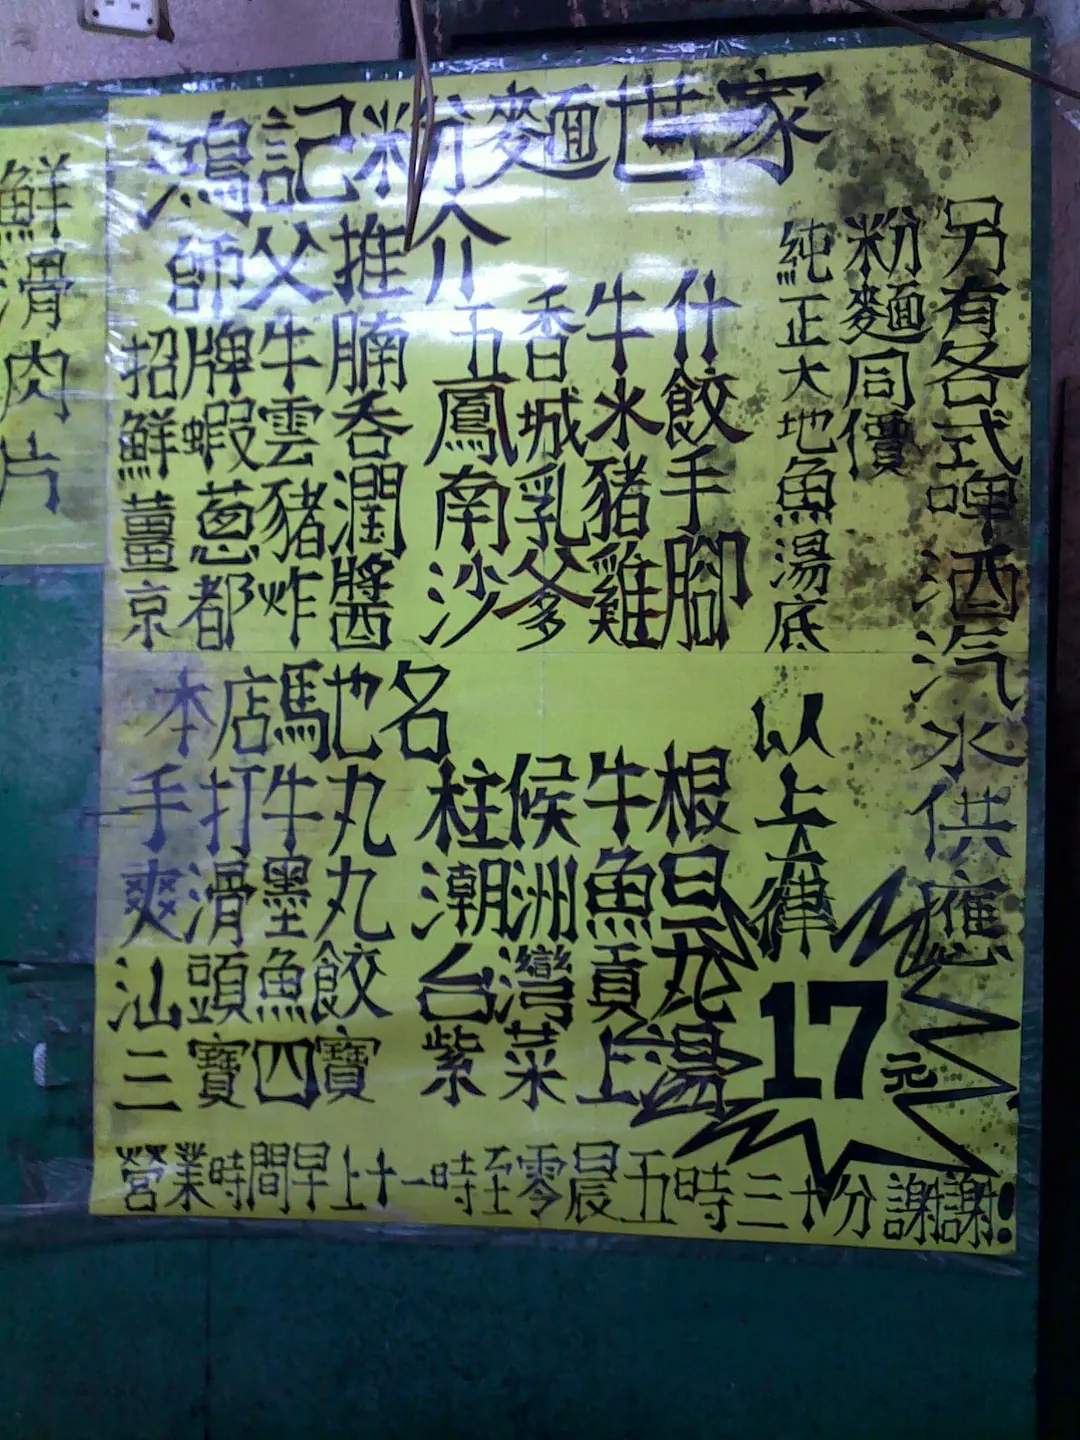 鴻記粉麵世家
師父推介
招牌牛腩
鮮蝦雲吞
薑蔥豬潤
京都炸醬
五香牛什
鳳城水餃
南乳豬手
沙爹雞腳
本店馳名
手打牛丸
爽滑墨丸
汕頭魚餃
三寶四寶
柱候牛根
潮洲魚旦
台灣貢丸
紫菜上湯
純正大地魚湯底
粉麵同價
另有各式啤酒汽水供應
以上一律
17元
營業時間早上十一時至零晨五時三十分謝謝!
鮮滑肉片